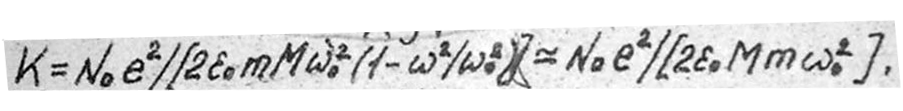 K = N₀e²/[2ε₀mMω₀²(1-ω²/ω₀²)] ≃ N₀e²/[2ε₀Mmω₀²].